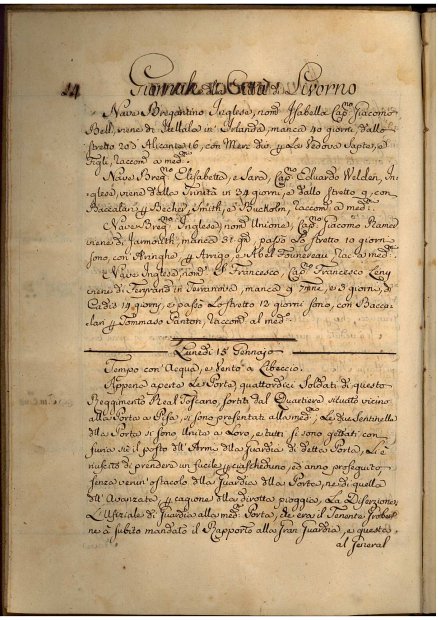 14
Giornale di Livorno
Nave Bregantino Inglese, nomª Isabella Capno Giacomo
Bell, viene di in Irlanda, manca 40 giorni, dallo
stretto 20 d'Alicante 16, con Merc dio, e Vedova Saptes, e
Figli, raccomª a medmi.
Nave Bregno Elisabetta, e Sara, Capno Eduardo Welden, In-
glese, viene dalla Trinetà in 34 giorni, e dallo stretto 9, con
Baccalari Becher, Smith, e Bucholm, raccomª a medmi.
Nave Bregno Inglese, nomª Unione, Capno Giacomo Ramer
viene di Jarmouth, manca 37 gni, passò lo stretto 10 giorni
sono, con Aringhe Arrigo, e Abel Fonnereau racª a medmi
Nave Inglese, nomª S. Francesco, Capno Francesco Leny
viene di in Terranova, manca 9 7mne, e 3 giorni, di
Cadis 14 giorni, e passò lo stretto 12 giorni sono, con Bacca-
lari Tommaso Panton, raccomª al medmo
Lunedì 15 Gennajo
Tempo con Acqua, e Vento a Libeccio.
Appena aperta le Porta, quattordici Soldati di questo
Reggimento Real Toscano, sortiti dal Quartiere situato vicino
alla Porta a Pisa, si sono presentati alla medma, le due Sentinelle
dlla Porta si sono unite a loro, e tutti si sono gettati con
furia sù il posto dll'Armi dlla Guardia di detta Porta, li è
riuscito di prendere un fucile ciascheduno, ed anno proseguito,
senza verun'ostacolo dlla Guardia dlla Porta, ne di quella
dll'Avanzata, cagione dlla dirotta pioggia, la Diserzione,
L'Ufiziale di Guardia alla medma Porta, che era il Tenente
ne à subito mandato il Rapporto alla Gran Guardia, e questa
al General